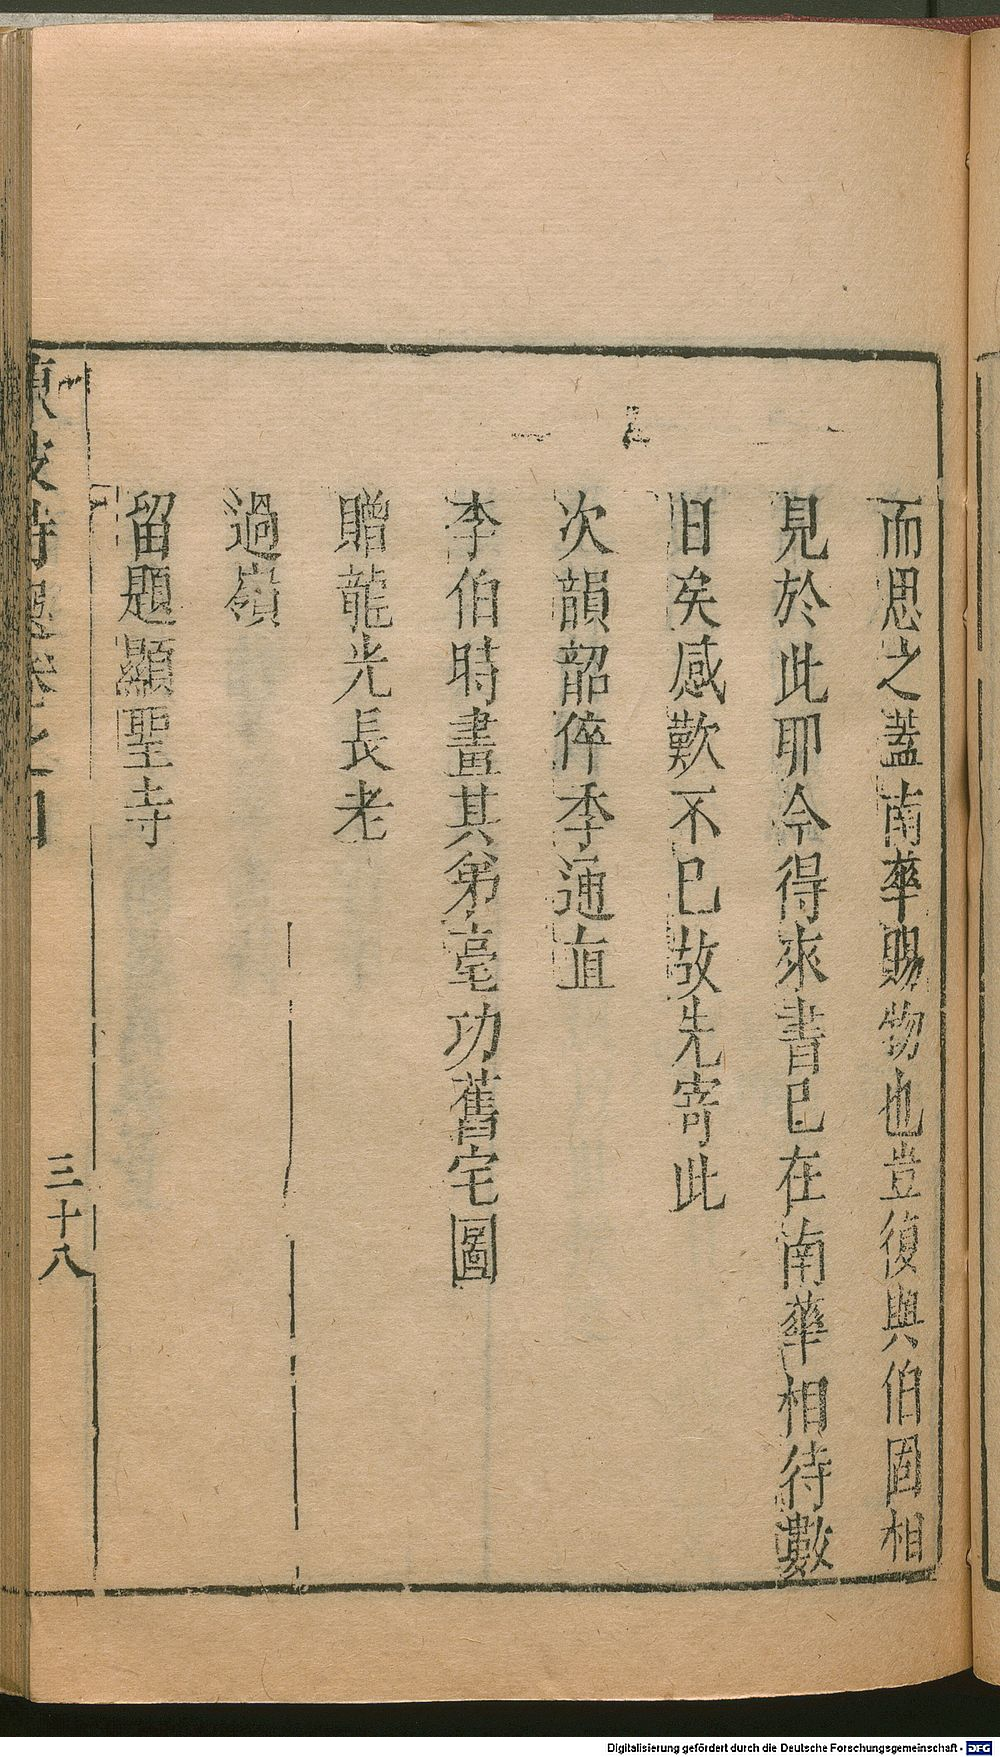 而思之蓋南華賜物也豈復與伯固相
見於此耶今得來書已在南華相待數
日矣感歎不已故先寄此
次韻韶倅李通直
李伯時畫其弟亮功舊宅圖
贈龍光長老
過嶺
留題顯聖寺
東坡詩選卷之
三十八
Digitalisierung gefördert durch die Deutsche Forschungsgemeinschaft - DFG